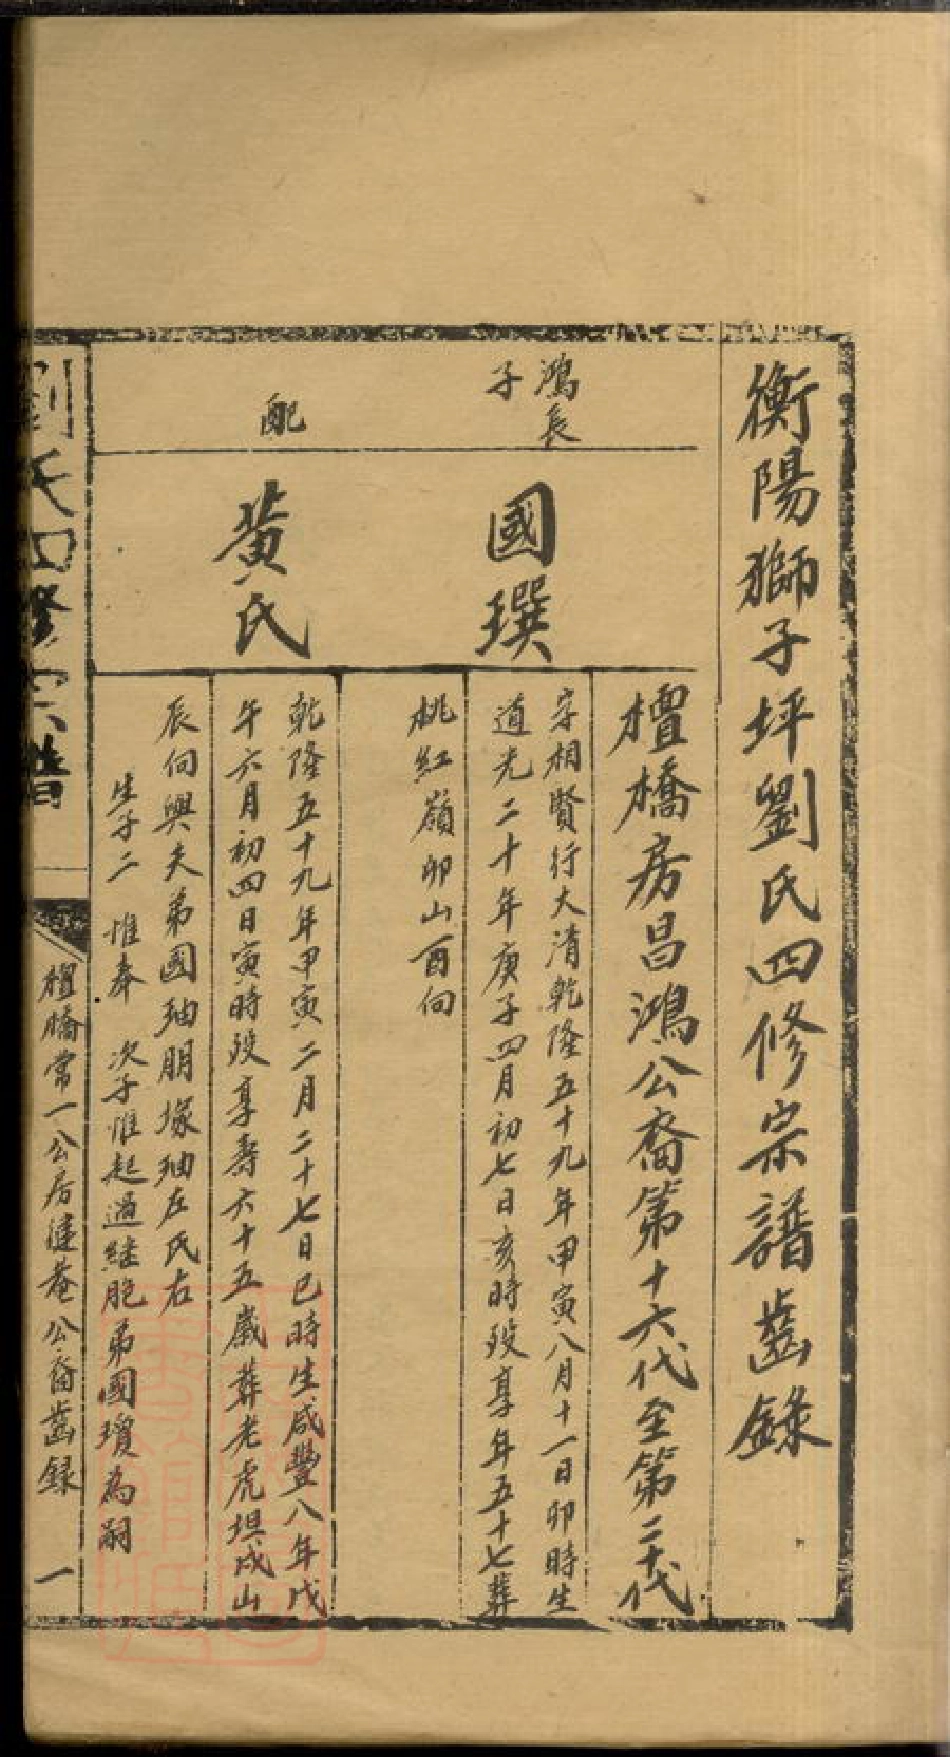 衡陽獅子坪劉氏四修宗譜齒錄
檀橋房昌鴻公裔第十六代至第二十代
鴻長
子
國璵
字相賢行大清乾隆五十九年甲寅八月十一日卯時生
道光二十年庚子四月初七日亥時歿享年五十七葬
桃紅嶺卯山酉向
配
黃氏
乾隆五十九年甲寅二月二十七日巳時生咸豐八年戊
午六月初四日寅時歿享壽六十五歲葬老虎垻戍山
辰向與夫弟國㻉朋塚㻉左氏右
生子二 惟奉 次子惟起過繼胞弟國瓊為嗣
劉氏四修宗譜
檀橋常一公房 公裔齒録 一